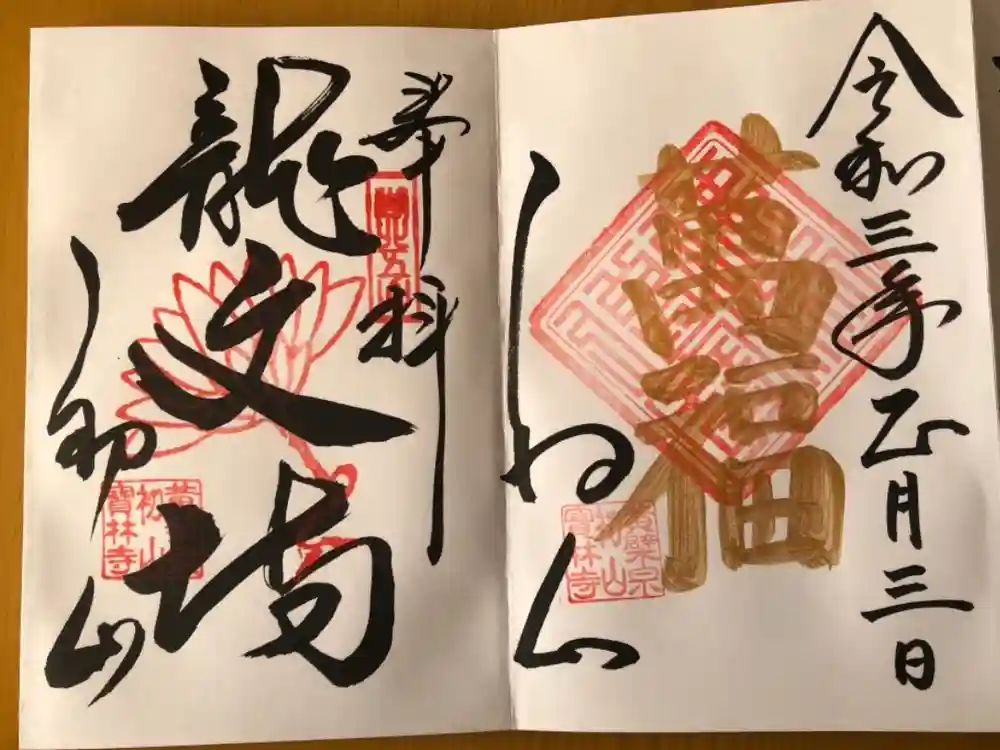 令和三年正月三日
萬福
黄檗宗
初山
寶林寺
奉拝
龍文場
初山
初山
寶林寺